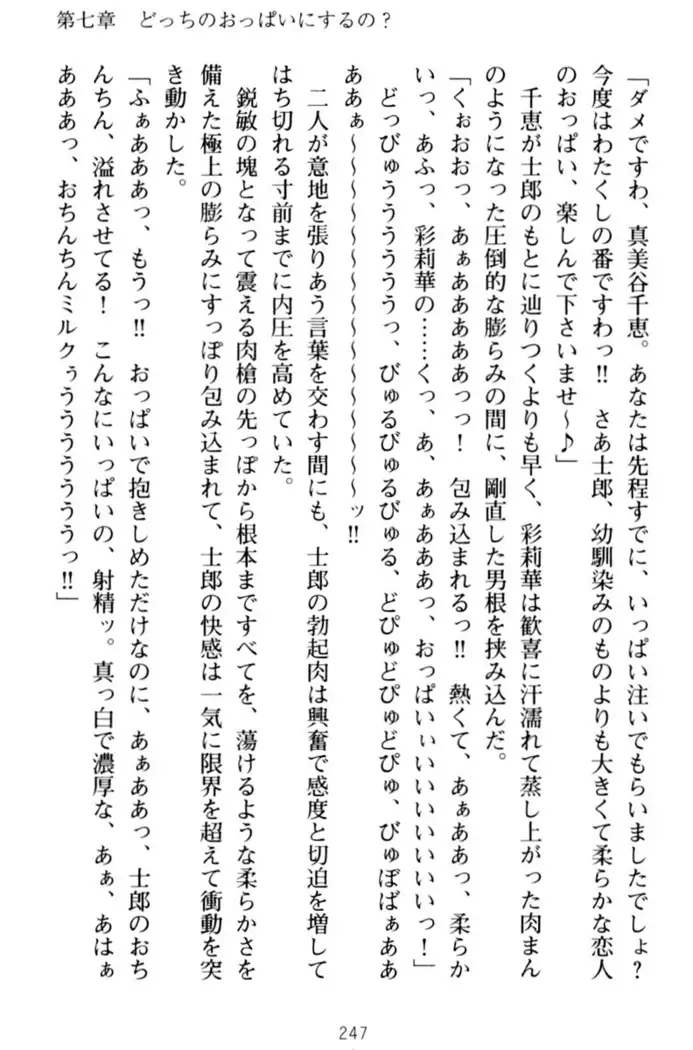 第七章　どっちのおっぱいにするの？
「ダメですわ、真美谷千恵。あなたは先程すでに、いっぱい注いでもらいましたでしょ？
今度はわたくしの番ですわっ!!　さあ士郎、幼馴染みのものよりも大きくて柔らかな恋人
のおっぱい、楽しんで下さいませ～♪」
　千恵が士郎のもとに辿りつくよりも早く、彩莉華は歓喜に汗濡れて蒸し上がった肉まん
のようになった圧倒的な膨らみの間に、剛直した男根を挟み込んだ。
「くぉおおっ、あぁああああああっっ！　包み込まれるっ!!　熱くて、あぁああっ、柔らか
いっ、あふっ、彩莉華の……くっ、あ、あぁあああっ、おっぱいぃぃいいいいいいっ！」
　どっびゅうううううっ、びゅるびゅるびゅる、どぴゅどぴゅどぴゅ、びゅぼばぁああ
ああぁ～～～～～～～～～～～～～ッ!!
　二人が意地を張りあう言葉を交わす間にも、士郎の勃起肉は興奮で感度と切迫を増して
はち切れる寸前までに内圧を高めていた。
　鋭敏の塊となって震える肉槍の先っぽから根本まですべてを、蕩けるような柔らかさを
備えた極上の膨らみにすっぽり包み込まれて、士郎の快感は一気に限界を超えて衝動を突
き動かした。
「ふぁあああっ、もうっ!!　おっぱいで抱きしめただけなのに、あぁああっ、士郎のおち
んちん、溢れさせてる！　こんなにいっぱいの、射精ッ。真っ白で濃厚な、あぁ、あはぁ
ああああっ、おちんちんミルクぅううううううっ!!」
247